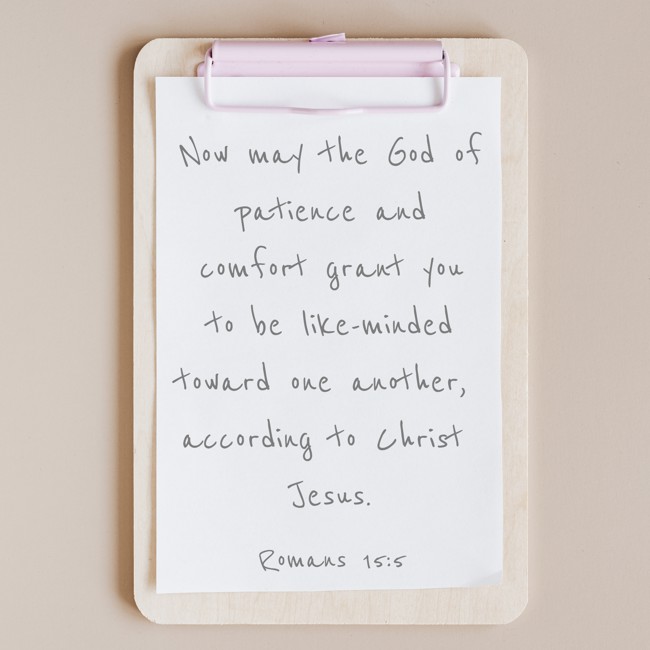 Now may the God of
patience and
comfort grant you
to be like-minded
toward one another,
according to Christ
Jesus.
Romans 15:5